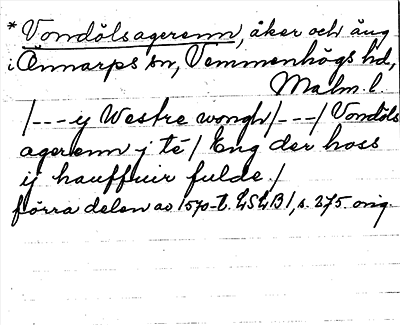 * Vondölsagerenn, åker och äng
i Önnarps sn, Vemmenhögs hd,
Malm. l.
/---y Westre wongh/---/ Vondöls
agerenn j té / Eng der hoss
ij hauffuir fulde./
förra delen av 1570-t. LSLB1, s. 275. orig.